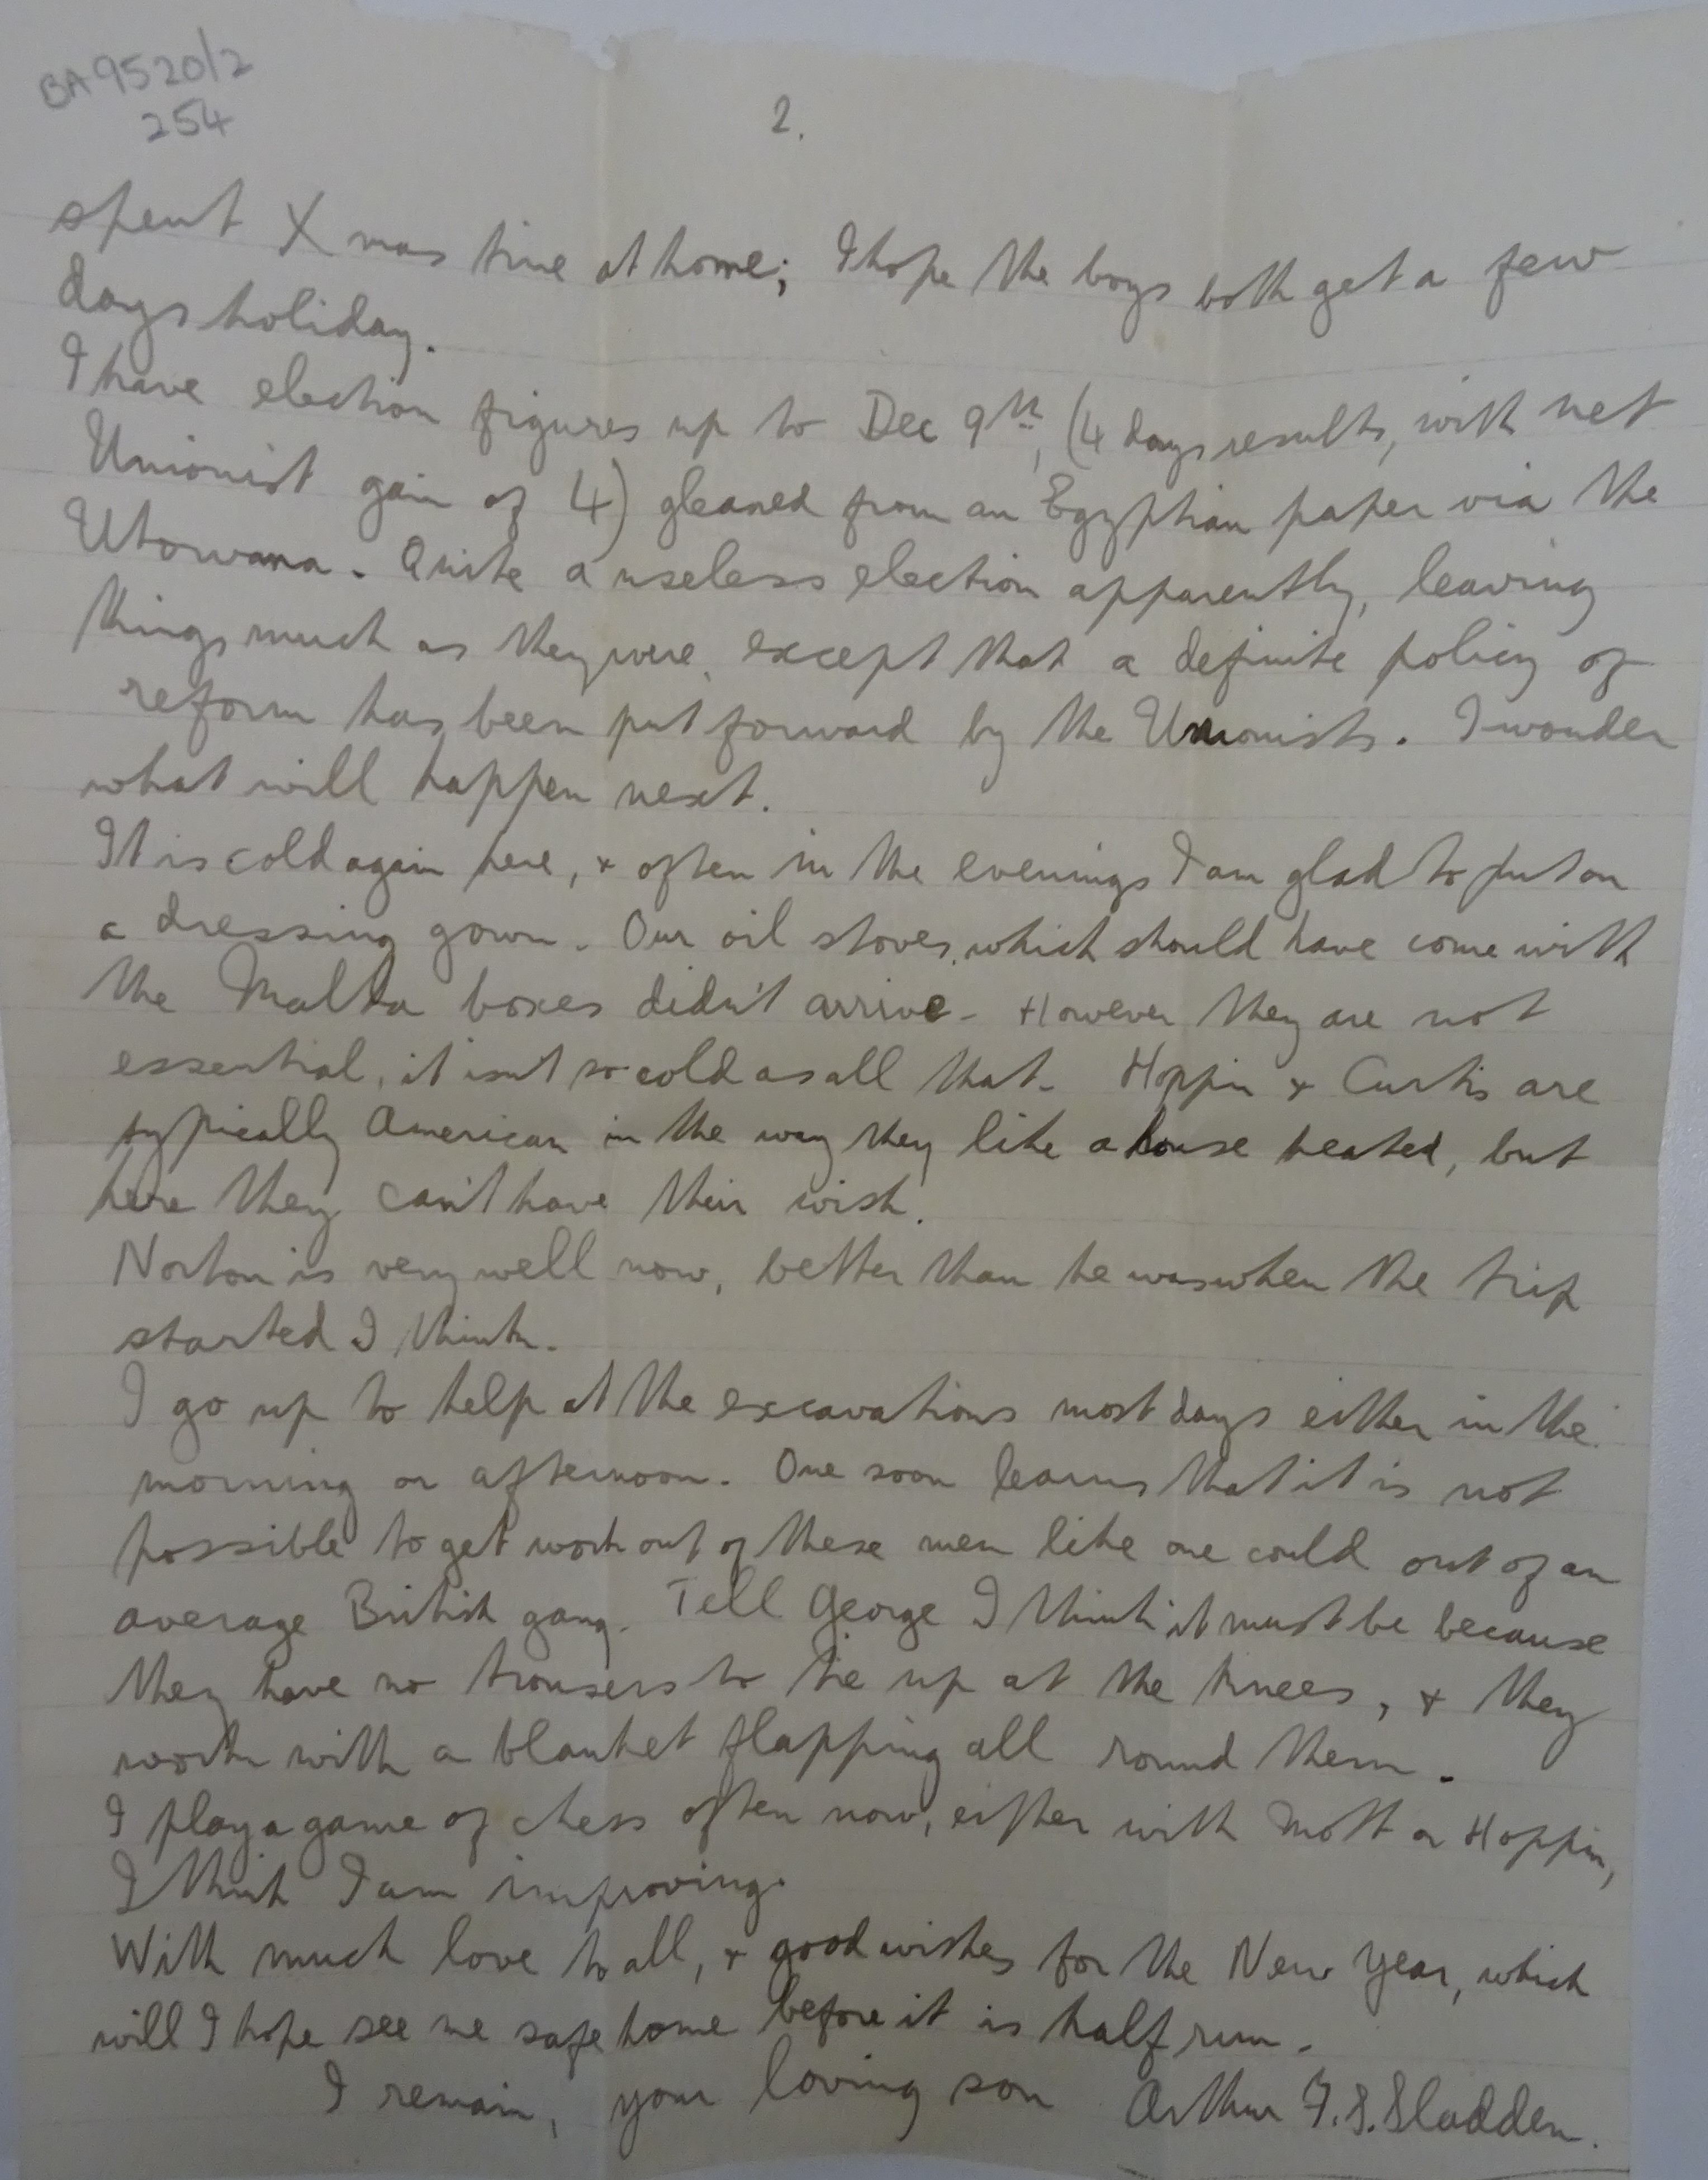 BA9520/2
254
2.
spent Xmas time at home; I hope the boys both get a few
days holiday.
I have election figures up to Dec 9th, (4 days results, with net
Unionist gain of 4) gleaned from an Egyptian paper via the
Utowana. Quite a useless election apparently, leaving
things much as they were, except that a definite policy of
reform has been put forward by the Unionists. I wonder
what will happen next.
It is cold again here, & often in the evenings I am glad to put on
a dressing gown. Our oil stoves, which should have come with
the Malta boxes didn't arrive. However they are not
essential, it isn't so cold as all that. Hoppin & Curtis are
typically American in the way they like a house heated, but
here they can't have their wish.
Norton is very well now, better than he was when the trip
started I think.
I go up to help at the excavations most days either in the
morning or afternoon. One soon learns that it is not
possible to get work out of these men like one could out of an
average British gang. Tell George I think it must be because
they have no trousers to tie up at the knees, & they
work with a blanket flapping all round them.
I play a game of chess often now, either with Mott or Hoppin,
I think I am improving.
With much love to all, & good wishes for the New Year, which
will I hope see me safe home before it is half run.
I remain, your loving son Arthur F.S. Sladden.